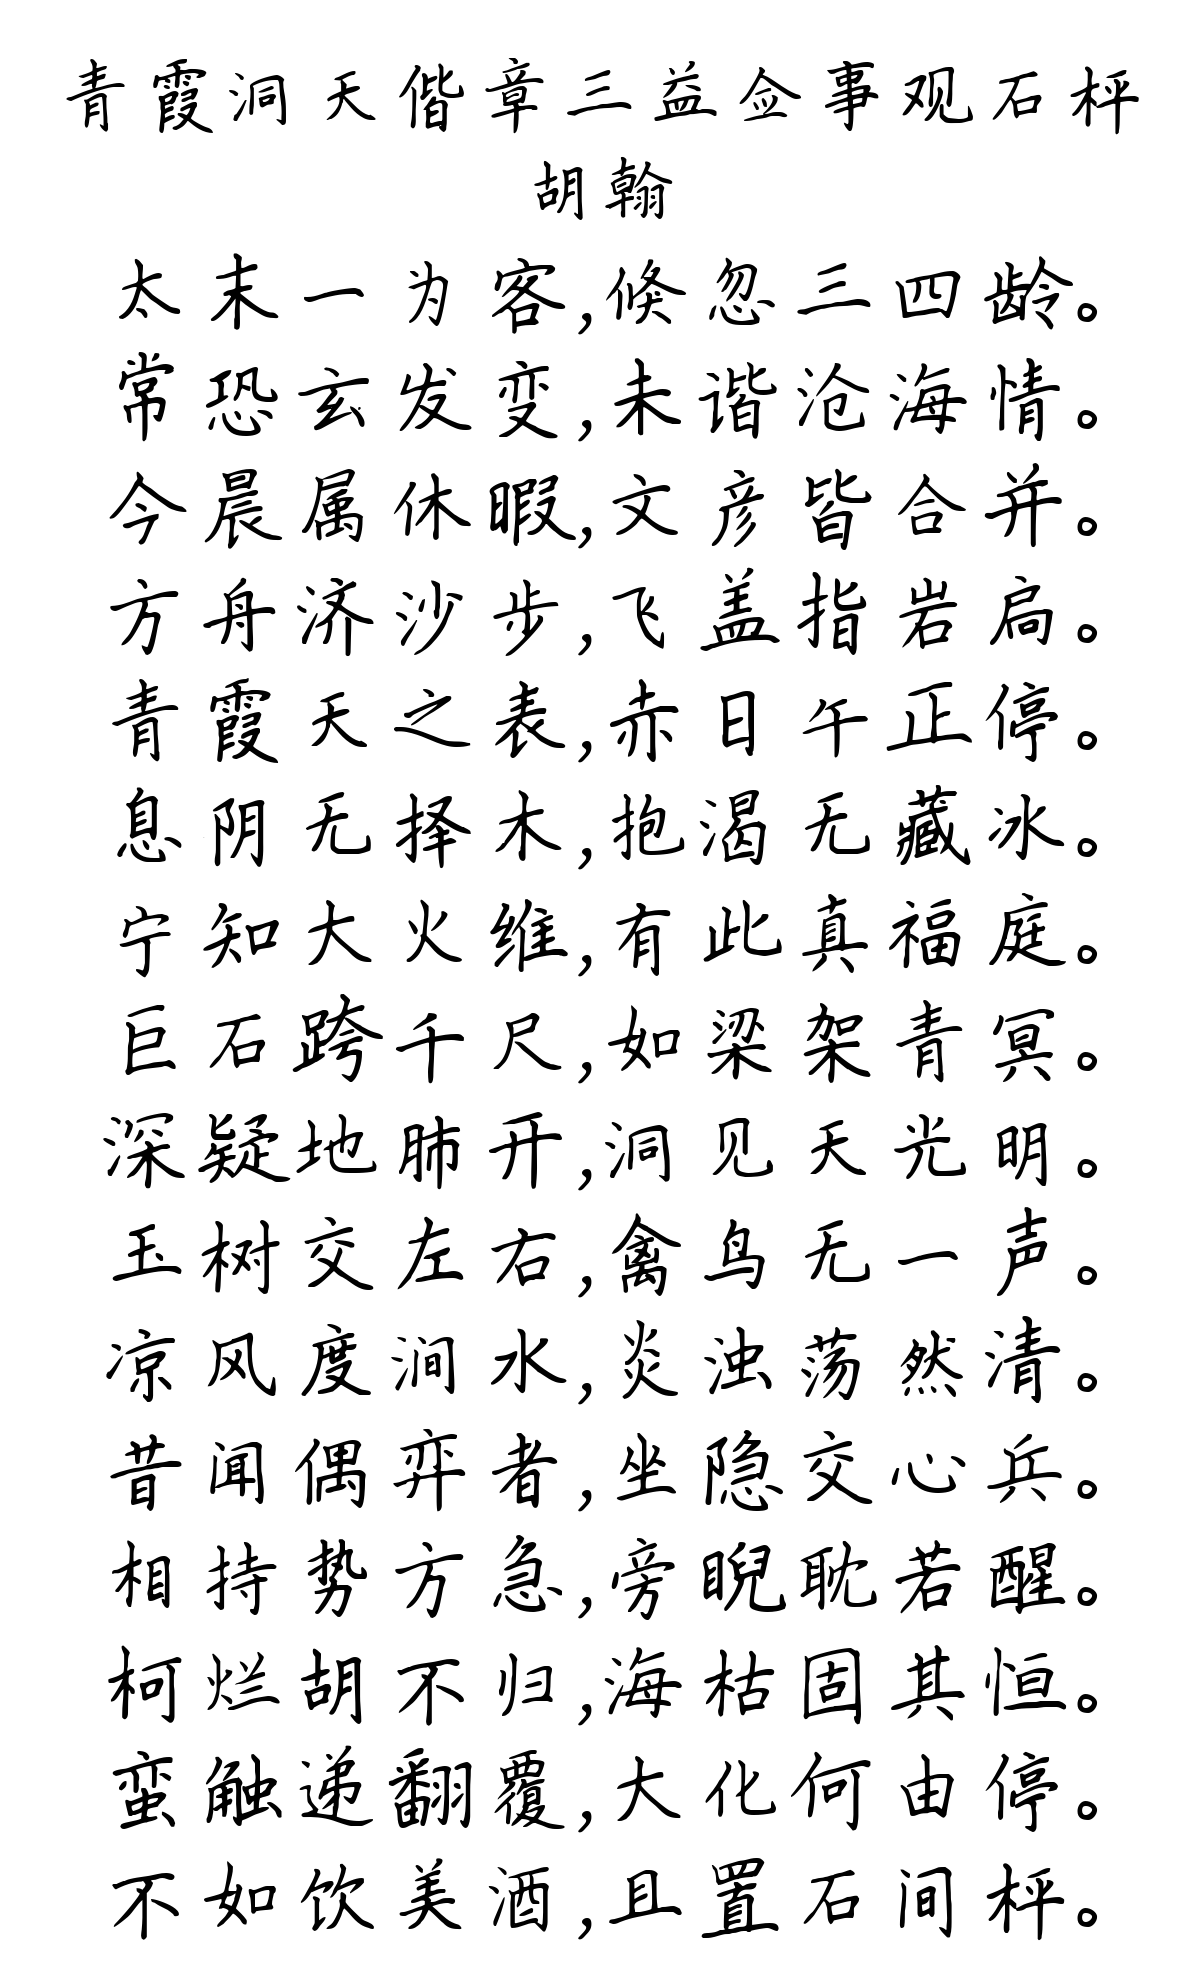 青霞洞天偕章三益佥事观石枰
胡翰
太末一为客,倏忽三四龄。
常恐玄发变,未谐沧海情。
今晨属休暇,文彦皆合并。
方舟济沙步,飞盖指岩扃。
青霞天之表,赤日午正停。
息阴无择木,抱渴无藏冰。
宁知大火维,有此真福庭。
巨石跨千尺,如梁架青冥。
深疑地肺开,洞见天光明。
玉树交左右,禽鸟无一声。
凉风度涧水,炎浊荡然清。
昔闻偶弈者,坐隐交心兵。
相持势方急,旁睨耽若醒。
柯烂胡不归,海枯固其恒。
蛮触递翻覆,大化何由停。
不如饮美酒,且置石间枰。